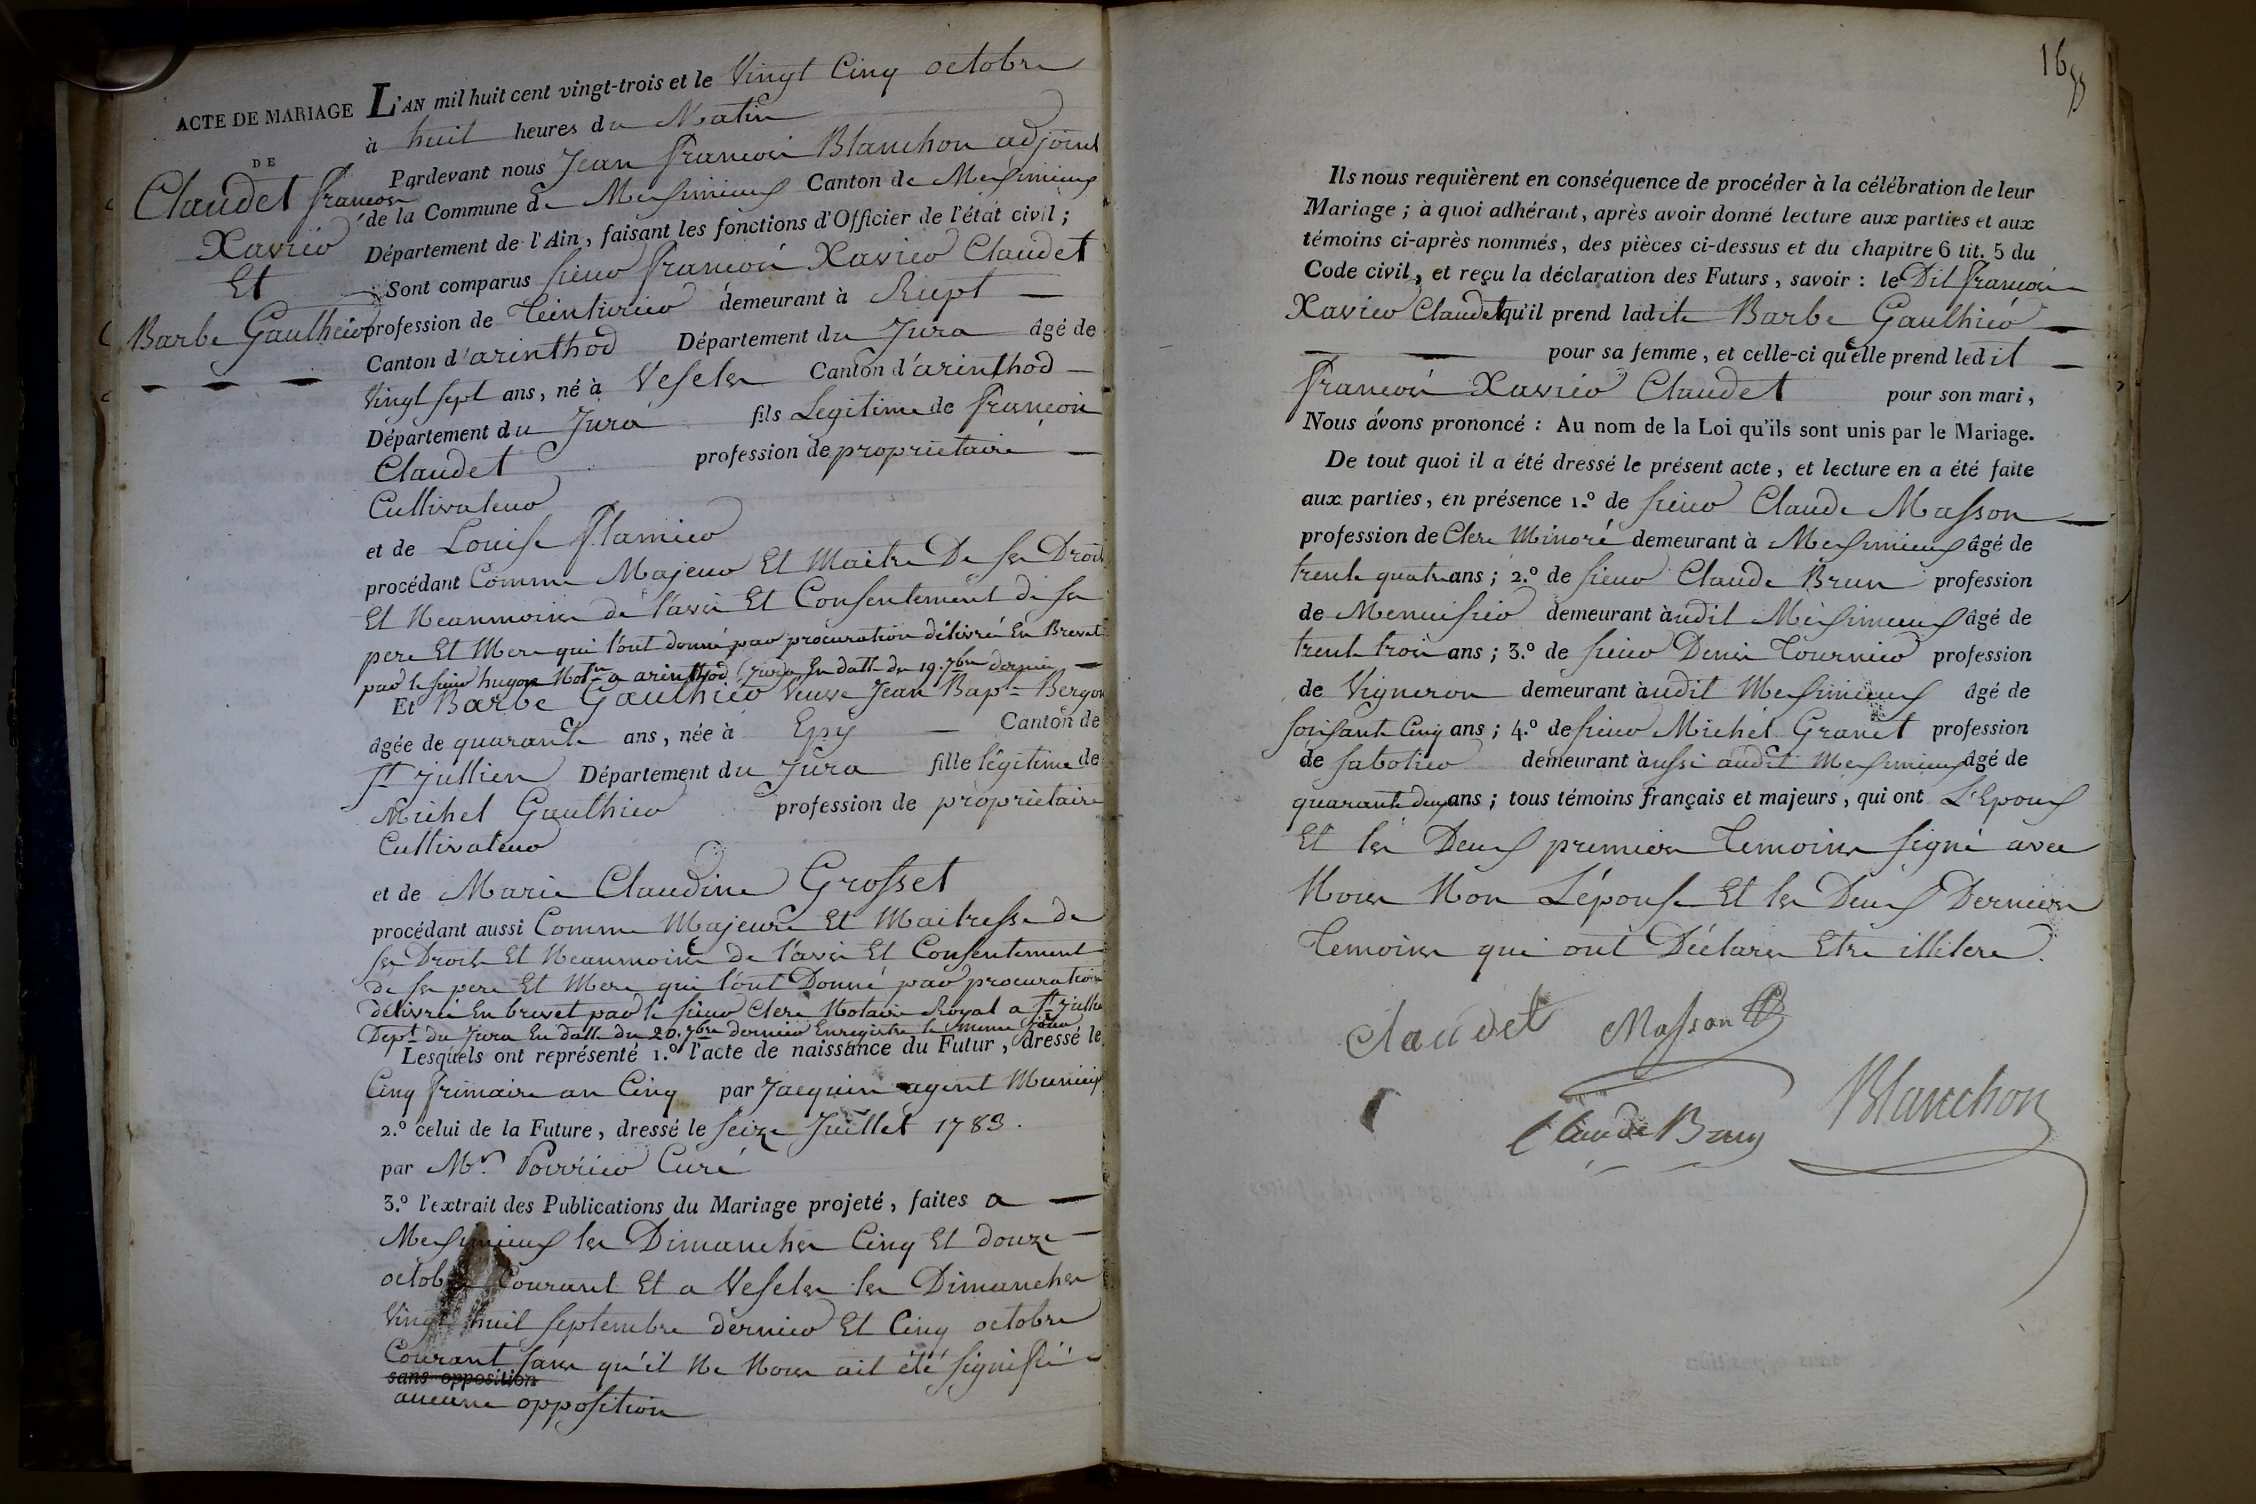 ACTE DE MARIAGE
DE
Claudet françois
Xavier
Et
Barbe Gauthier
L'AN mil huit cent vingt-trois et le Vingt Cinq octobre
à huit heures du Matin
Pardevant nous Jean françois Blanchon adjoint
de la Commune de Meximieux Canton de Meximieux
Département de l'Ain, faisant les fonctions d'Officier de l'état civil ;
Sont comparus sieur françois Xavier Claudet
profession de Teinturier demeurant à Rupt
Canton d'arinthod Département du Jura âgé de
Vingt sept ans, né à Vescles Canton d'arinthod
Département du Jura fils Legitime de françois
Claudet profession de proprietaire
Cultivateur
et de Louise flamier
procédant Comme Majeur Et Maitre De ses Droits
Et Neanmoins de l'avis Et Consentement de ses
pere Et Mere qui l'ont donné par procuration délivré En Brevet
par le sieur hugon Notre a arinthod (Jura) En datte du 19. 7bre dernier
Et Barbe Gauthier Veuve Jean Bapte Bergon
âgée de quarante ans, née à Epy Canton de
St Jullien Département du Jura fille légitime de
Michel Gauthier profession de proprietaire
Cultivateur
et de Marie Claudine Grosset
procédant aussi Comme Majeure Et Maitresse de
ses Droits Et Neanmoins de l'avis Et Consentement
de ses pere Et Mere qui l'ont Donné par procuration
délivrée En brevet par le sieur Clerc Notaire Royal a St Jullien
Dept du Jura En datte du 20. 7bre dernier Enregistré le meme jour
Lesquels ont représenté 1.º l'acte de naissance du Futur, dressé le
Cinq frimaire an Cinq par Jacquin agent Municip
2.º celui de la Future, dressé le seize Juillet 1783.
par Mr. Poirrier Curé
3.º l'extrait des Publications du Mariage projeté, faites a
Meximieux les Dimanches Cinq Et douze
octobre Courant Et a Vescles les Dimanches
Vingt huit septembre dernier Et Cinq octobre
Courant sans qu'il Ne Nous ait été signifié
sans opposition
aucune opposition
16
55
Ils nous requièrent en conséquence de procéder à la célébration de leur
Mariage ; à quoi adhérant, après avoir donné lecture aux parties et aux
témoins ci-après nommés, des pièces ci-dessus et du chapitre 6 tit. 5 du
Code civil, et reçu la déclaration des Futurs, savoir : le Dit françois
Xavier Claudet qu'il prend ladite Barbe Gauthier
pour sa femme, et celle-ci qu'elle prend ledit
françois Xavier Claudet pour son mari,
Nous avons prononcé : Au nom de la Loi qu'ils sont unis par le Mariage.
De tout quoi il a été dressé le présent acte, et lecture en a été faite
aux parties, en présence 1.º de sieur Claude Masson
profession de Clerc Minoré demeurant à Meximieux âgé de
trente quatre ans ; 2.º de sieur Claude Brun profession
de Menuisier demeurant audit Meximieux âgé de
trente trois ans ; 3.º de sieur Denis Tournier profession
de Vigneron demeurant audit Meximieux âgé de
soixante Cinq ans ; 4.º de sieur Michel Granet profession
de sabotier demeurant aussi audit Meximieux âgé de
quarante deux ans ; tous témoins français et majeurs, qui ont L'Epoux
Et les Deux premiers Temoins signé avec
Nous Non L'épouse Et les Deux Derniers
Temoins qui ont Déclarer Etre illitere.
claudet Masson
Claude Brun
Blanchon